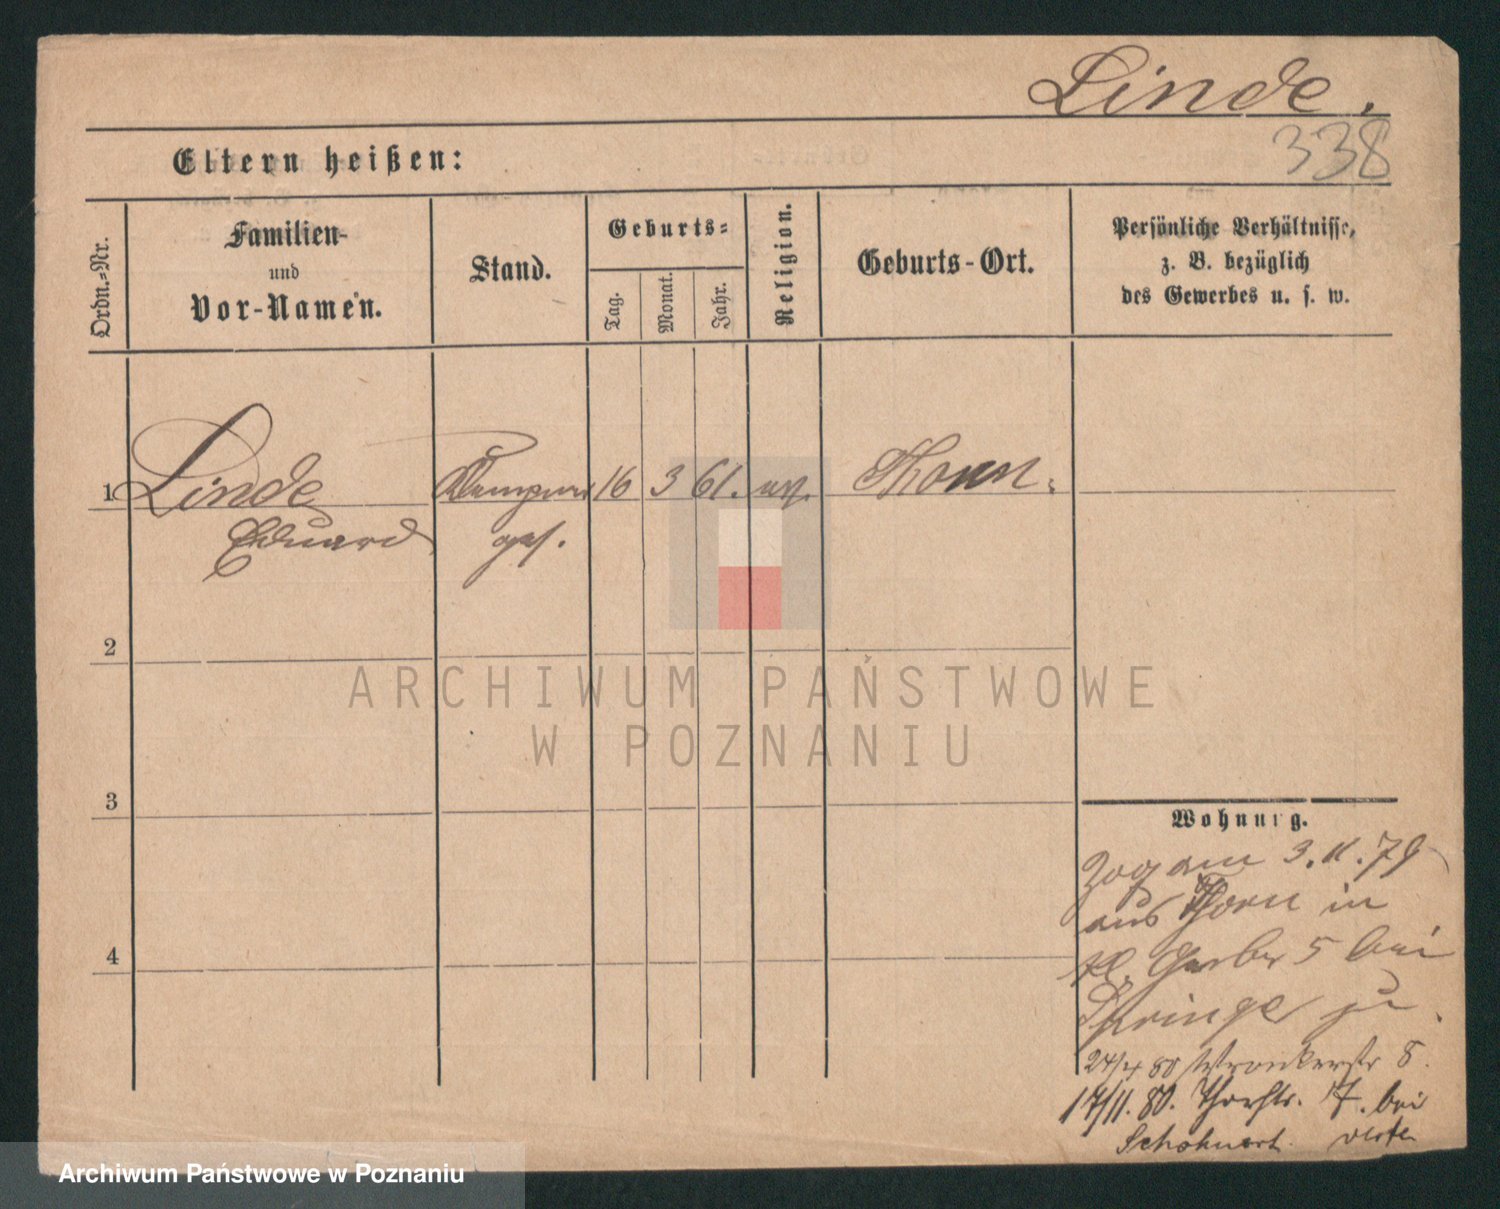 Linde.
338
Eltern heißen:
Ordn.-Nr.
Familien-
und
Vor-Namen.
Stand.
Geburts-
Tag.
Monat.
Jahr.
Religion.
Geburts-Ort.
Persönliche Verhältnisse,
z. B. bezüglich
des Gewerbes u. s. w.
1 Linde 16 3 61. Thorn.
Eduard
2
3
4
Wohnung.
Zog am 3. 11. 79
aus Thorn in
kl. Gerber 5 bei
Springer zu.
24/4 80 Wronkerstr 8.
17/11. 80. 7. bei
ARCHIWUM PAŃSTWOWE
W POZNANIU
Archiwum Państwowe w Poznaniu